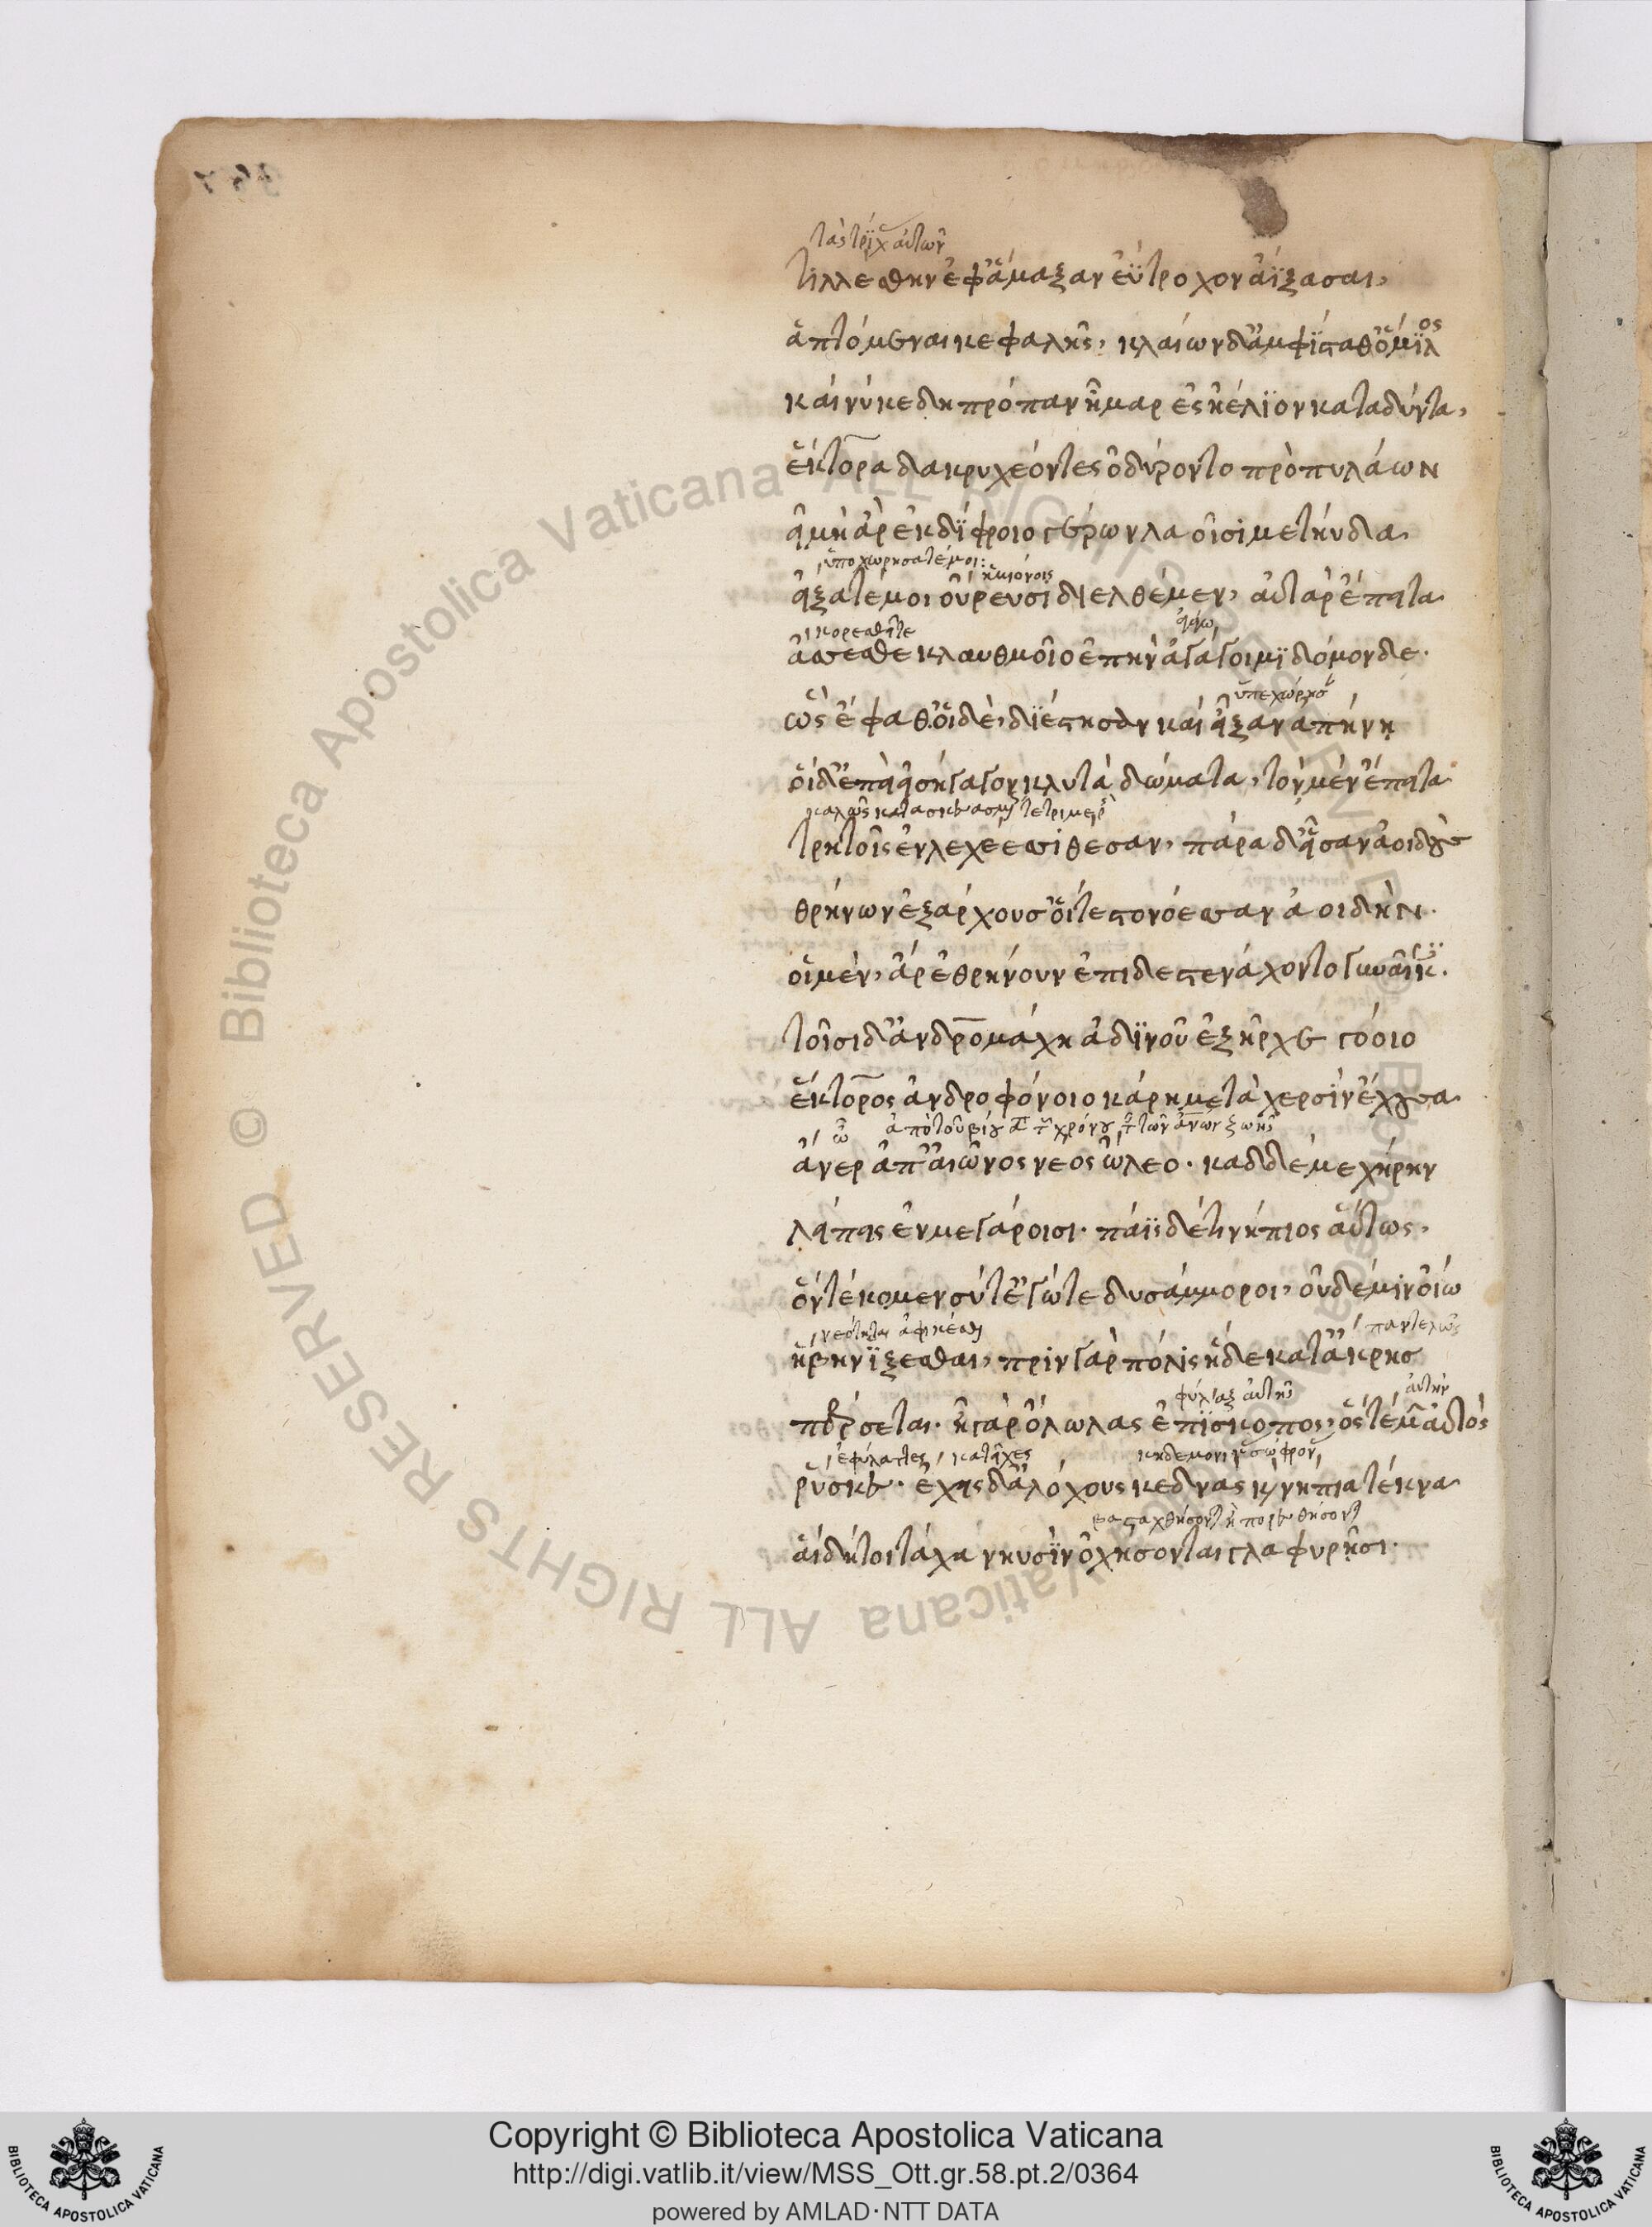 τὰς τρίχ αὐτῶν
τιλλέσθην ἐφ' ἅμαξαν ἐΰτροχον ἀΐξασαι,
ἁπτόμεναι κεφαλῆς, κλαίων δ' ἀμφίσταθ' ὅμιλος
καί νύ κε δὴ πρόπαν ἦμαρ ἐς ἠέλιον καταδύντα,
ἕκτορα δακρυχέοντες ὀδύροντο πρὸ πυλάων
εἰ μὴ ἄρ' ἐκ δίφροιο γέρων λαοῖσι μετηύδα.
ὑποχωρήσατέ μοι: ἡμιόνοις
εἴξατέ μοι οὐρεῦσι διελθέμεν, αὐτὰρ ἔπειτα
κορεσθῆτε
ἄσεσθε κλαυθμοῖο ἐπὴν ἀγάγοιμι δόμονδε.
ὑπεχώρησ
ὣς ἔφαθ' οἱ δὲ, διέστησαν καὶ εἶξαν ἀπήνῃ
οἱ δ' ἐπεὶ εἰσήγαγον κλυτὰ δώματα, τὸν μὲν ἔπειτα
καλῶς
τρητοῖς ἐν λεχέεσσι θέσαν, πάρα δ' εἷσαν ἀοιδοὺς
θρήνων ἐξάρχους οἵτε στονόεσσαν ἀοιδὴν.
οἱ μὲν, ἄρ' ἐθρήνουν ἐπὶ δὲ στενάχοντο γυναῖκ.
τοῖσι δ' ἀνδρομάχη ἀδινοῦ ἐξῆρχε γόοιο
ἕκτορος ἀνδροφόνοιο κάρη μετὰ χερσὶν ἔχουσα
ὦ ἀπὸ τοῦ βίου χρόνου τῶν ζωῆς
ἄνερ ἀπ' αἰῶνος νέος ὤλεο. καδδέ με χήρην
λείπεις ἐν μεγάροισι. πάϊς δέ τι νήπιος αὔτως,
ὃν τέκομεν σύ τ' ἐγώ τε δυσάμμοροι, οὐδέ μιν οἴω
νεότητα ἀφικέσθαι παντελῶς
ἥβην ἵξεσθαι, πρὶν γὰρ πόλις ἥδε κατ' ἄκρης
φύλαξ αὐτῆς αὐτήν
πέρσεται. ἦ γὰρ ὄλωλας ἐπίσκοπος, ὅς τέ μιν αὐτὸς
ἐφύλαττες κατεῖχες
ῥύσκευ. ἔχεις δ' ἀλόχους κεδνὰς κ νήπια τέκνα
βασταχθήσοντ
αἳ δή τοι τάχα νηυσὶν ὀχήσονται γλαφυρῇσι.
Copyright © Biblioteca Apostolica Vaticana
http://digi.vatlib.it/view/MSS_Ott.gr.58.pt.2/0364
powered by AMLAD·NTT DATA